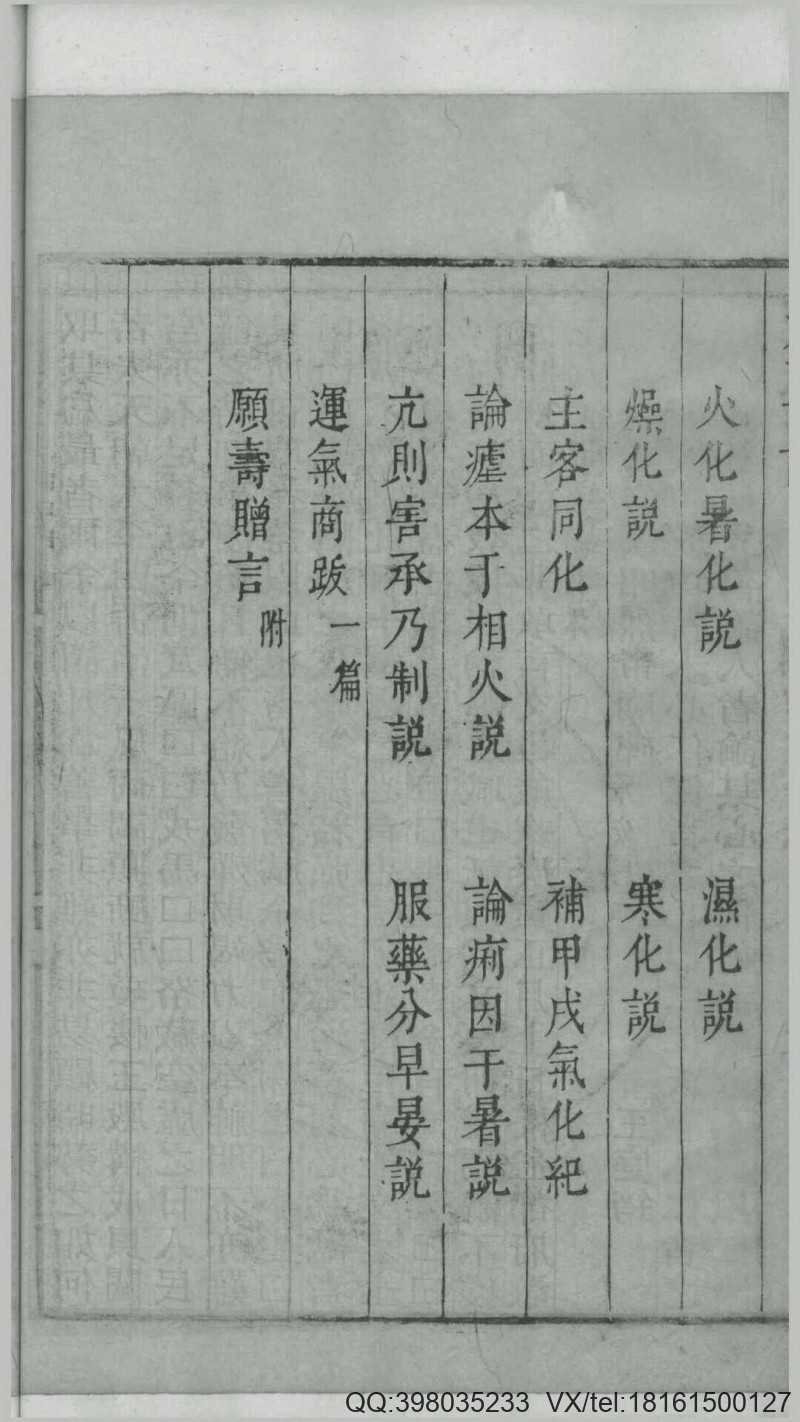 火化暑化説　濕化説
燥化説　寒化説
主客同化　補甲戌氣化紀
論瘧本于相火説　論痢因于暑説
亢則害承乃制説　服藥分早晏説
運氣商跋一篇
願壽贈言附
QQ:398035233 VX/tel:18161500127